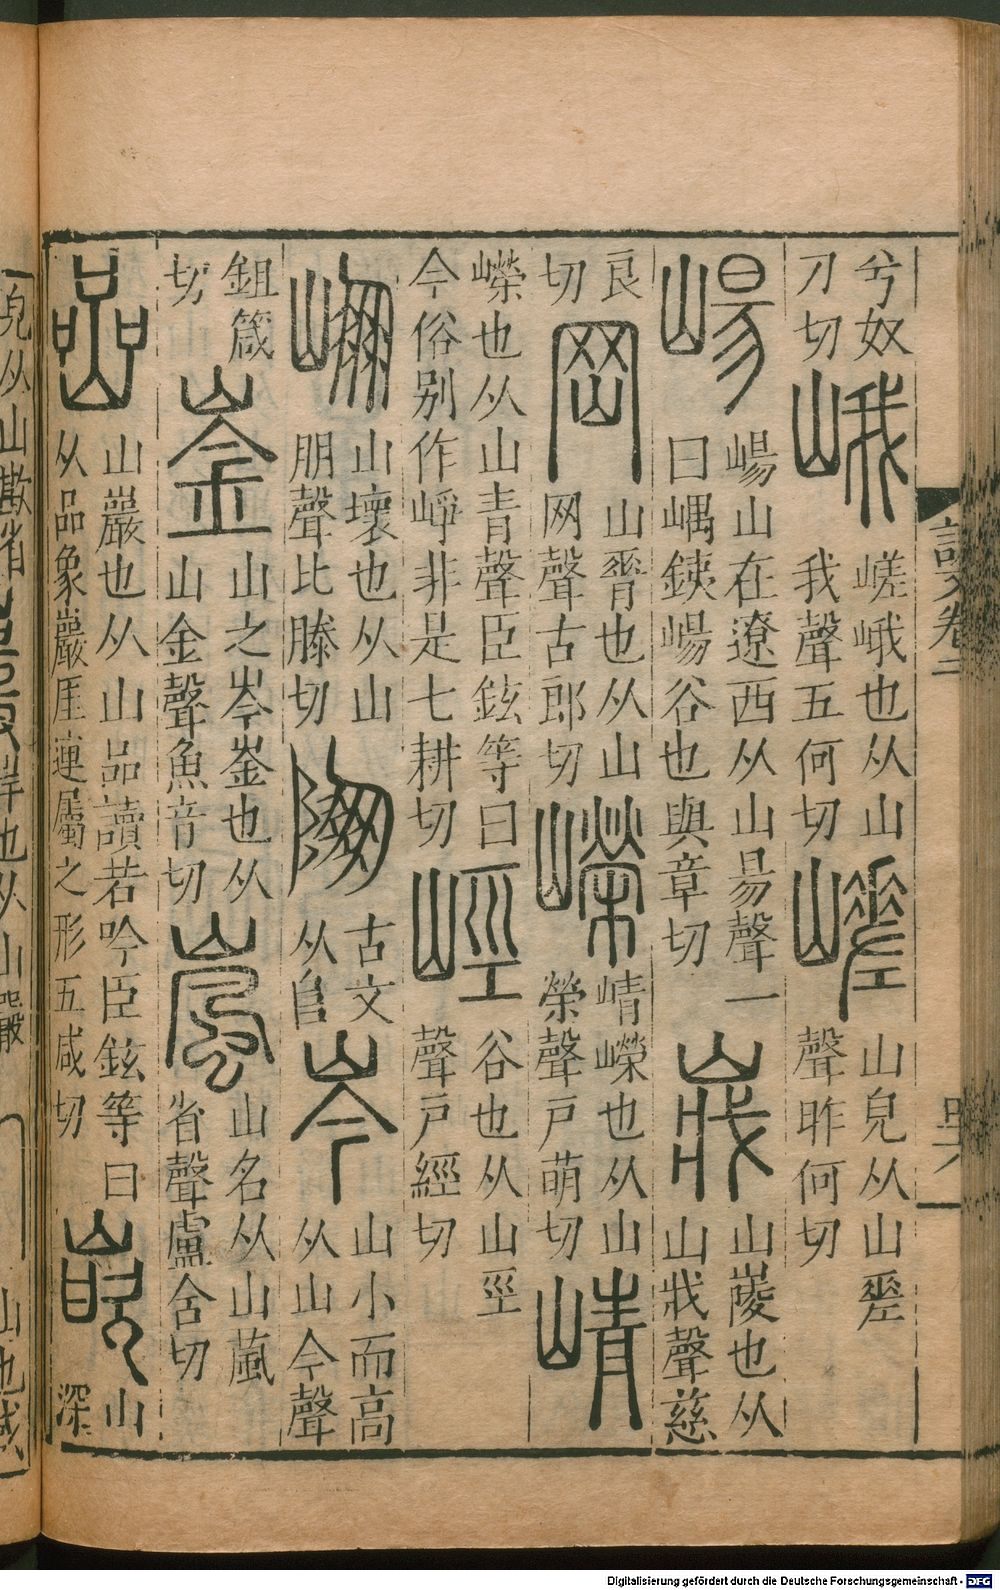 兮奴
刀切
峨
嵯峨也从山
我聲五何切
嵯
山皃从山𠂹
聲昨何切
崵
崵山在遼西从山昜聲一
曰嵎銕崵谷也與章切
山㚜也从
山戕聲慈
良
切
岡
山脊也从山
网聲古郎切
嶸
崝嶸也从山
榮聲戶萌切
崝
嶸也从山青聲臣鉉等曰
今俗别作崢非是七耕切
谷也从山巠
聲戶經切
山壞也从山
朋聲比滕切
古文
从𨸏
岑
山小而高
从山今聲
鉏箴
切
崟
山之岑崟也从
山金聲魚音切
山名从山
省聲盧含切
嵒
山巖也从山品讀若吟臣鉉等曰
从品象巖厓連屬之形五咸切
山
深
皃从山
岸也从山
山也
說文卷
Digitalisierung gefördert durch die Deutsche Forschungsgemeinschaft - DFG